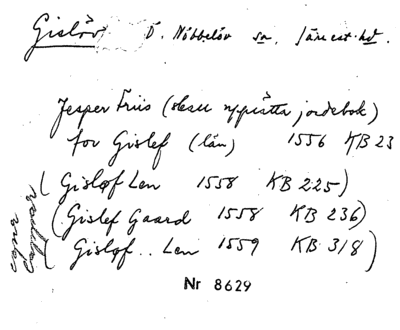 Gislöv Ö. Nöbbelöv sn. Järrest. hd.
Jesper Friis (dess uppsatta jordebok)
for Gislef (län) 1556 KB 23
(Gisløf Len 1558 KB 225)
(Gislef Gaard 1558 KB 236)
(Gisløf .. Len 1559 KB 318)
Nr 8629